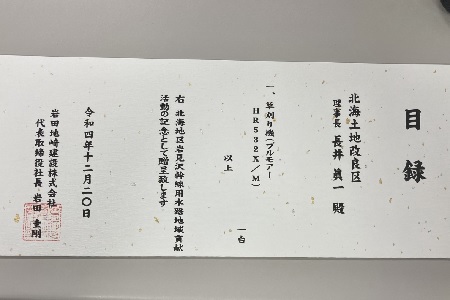 目録
北海土地改良区
理事長 長井 眞一 殿
一、草刈り機(ブルモアー
HR532X/M) 一台
以上
右 北海地区岩見沢幹線用水路地域貢献
活動の記念として贈呈致します
令和四年十二月二〇日
岩田地崎建設株式会社
代表取締役社長 岩田 圭剛